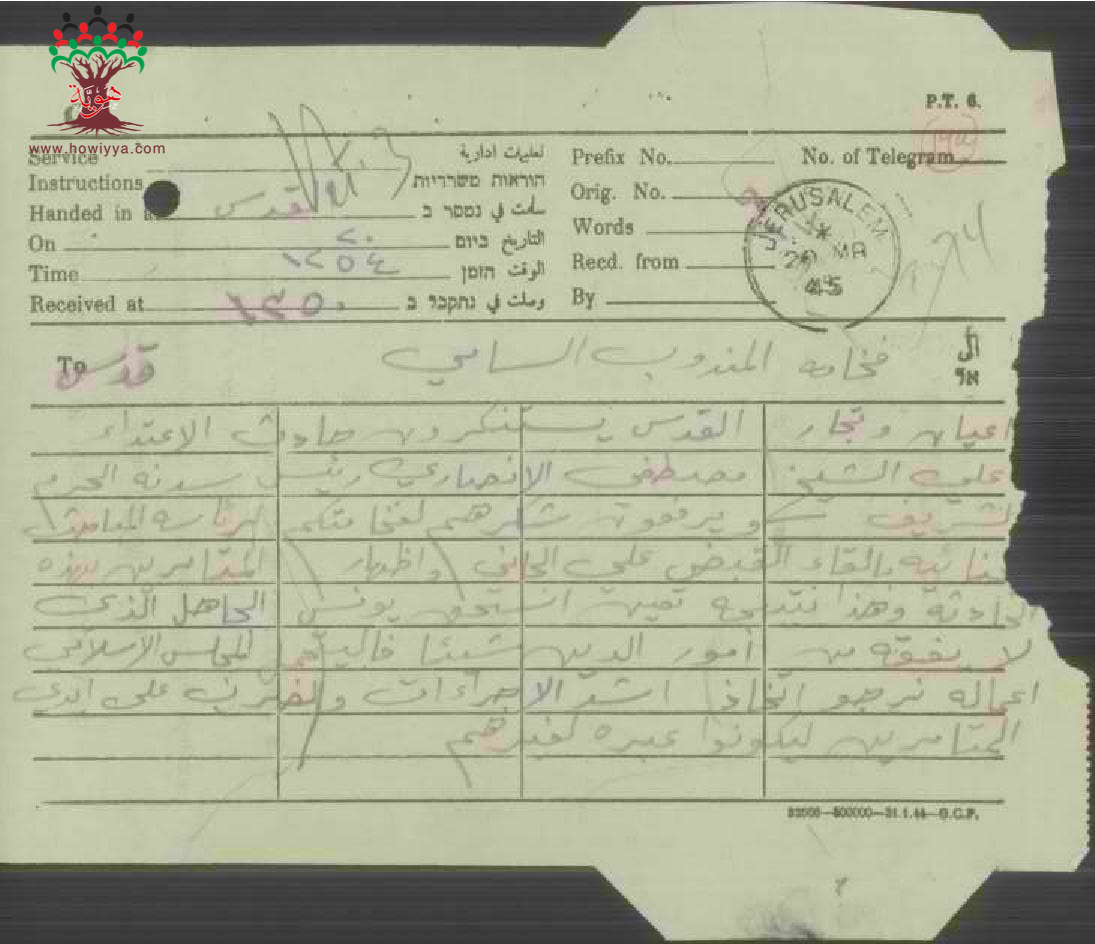 هوية
www.howiyya.com
P.T. 6.
Service تعليمات ادارية
Instructions הוראות משרדיות
Handed in at القدس سلمت في נמסר ב
On ٢٠ التاريخ ביום
Time ١٢٥٤ الوقت הזמן
Received at ١٣٥٠ وصلت في נתקבל ב
Prefix No. No. of Telegram
Orig. No.
Words
Recd. from
By
JERUSALEM
20 MR
45
To قدس فخامه المندوب السامي الى אל
اعيان وتجار القدس يستنكرون حادث الاعتداء
على الشيخ مصطفى الانصاري رئيس سدنه الحرم
الشريف ويرفعون شكرهم لفخامتكم لرئاسه المباحث
نائيه بالقاء القبض على الجاني واظهار المتامرين بهذه
الحادثة وهذا نتيجه تعيين يونس الجاهل الذي
لا يفقه من أمور الدين شيئا المجلس الاسلامي
اعماله نرجو اتخاذ اشد الاجراءات والضرب على ايدي
المتامرين ليكونوا عبره لغيرهم
32006—500000—31.1.44—G.C.P.